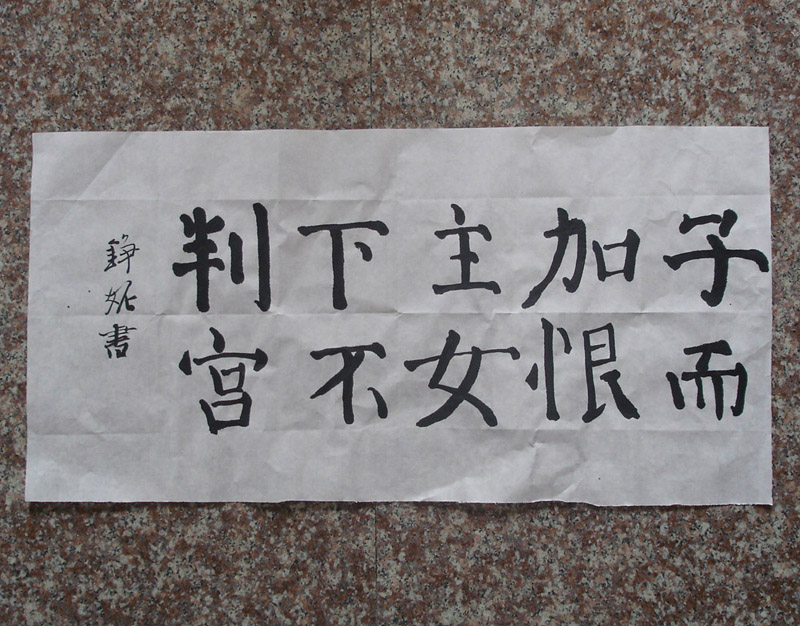 子而
加恨
主女
下不
判宫
錚妮書